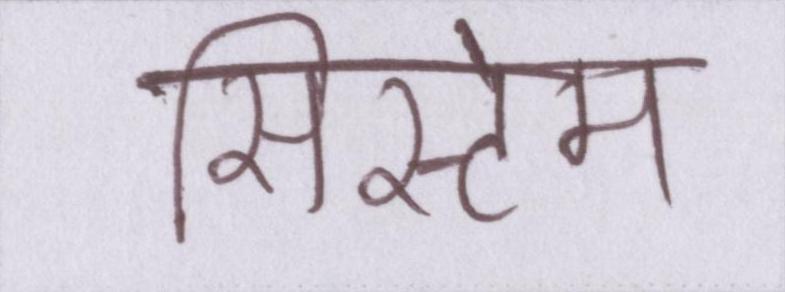 सिस्टेम